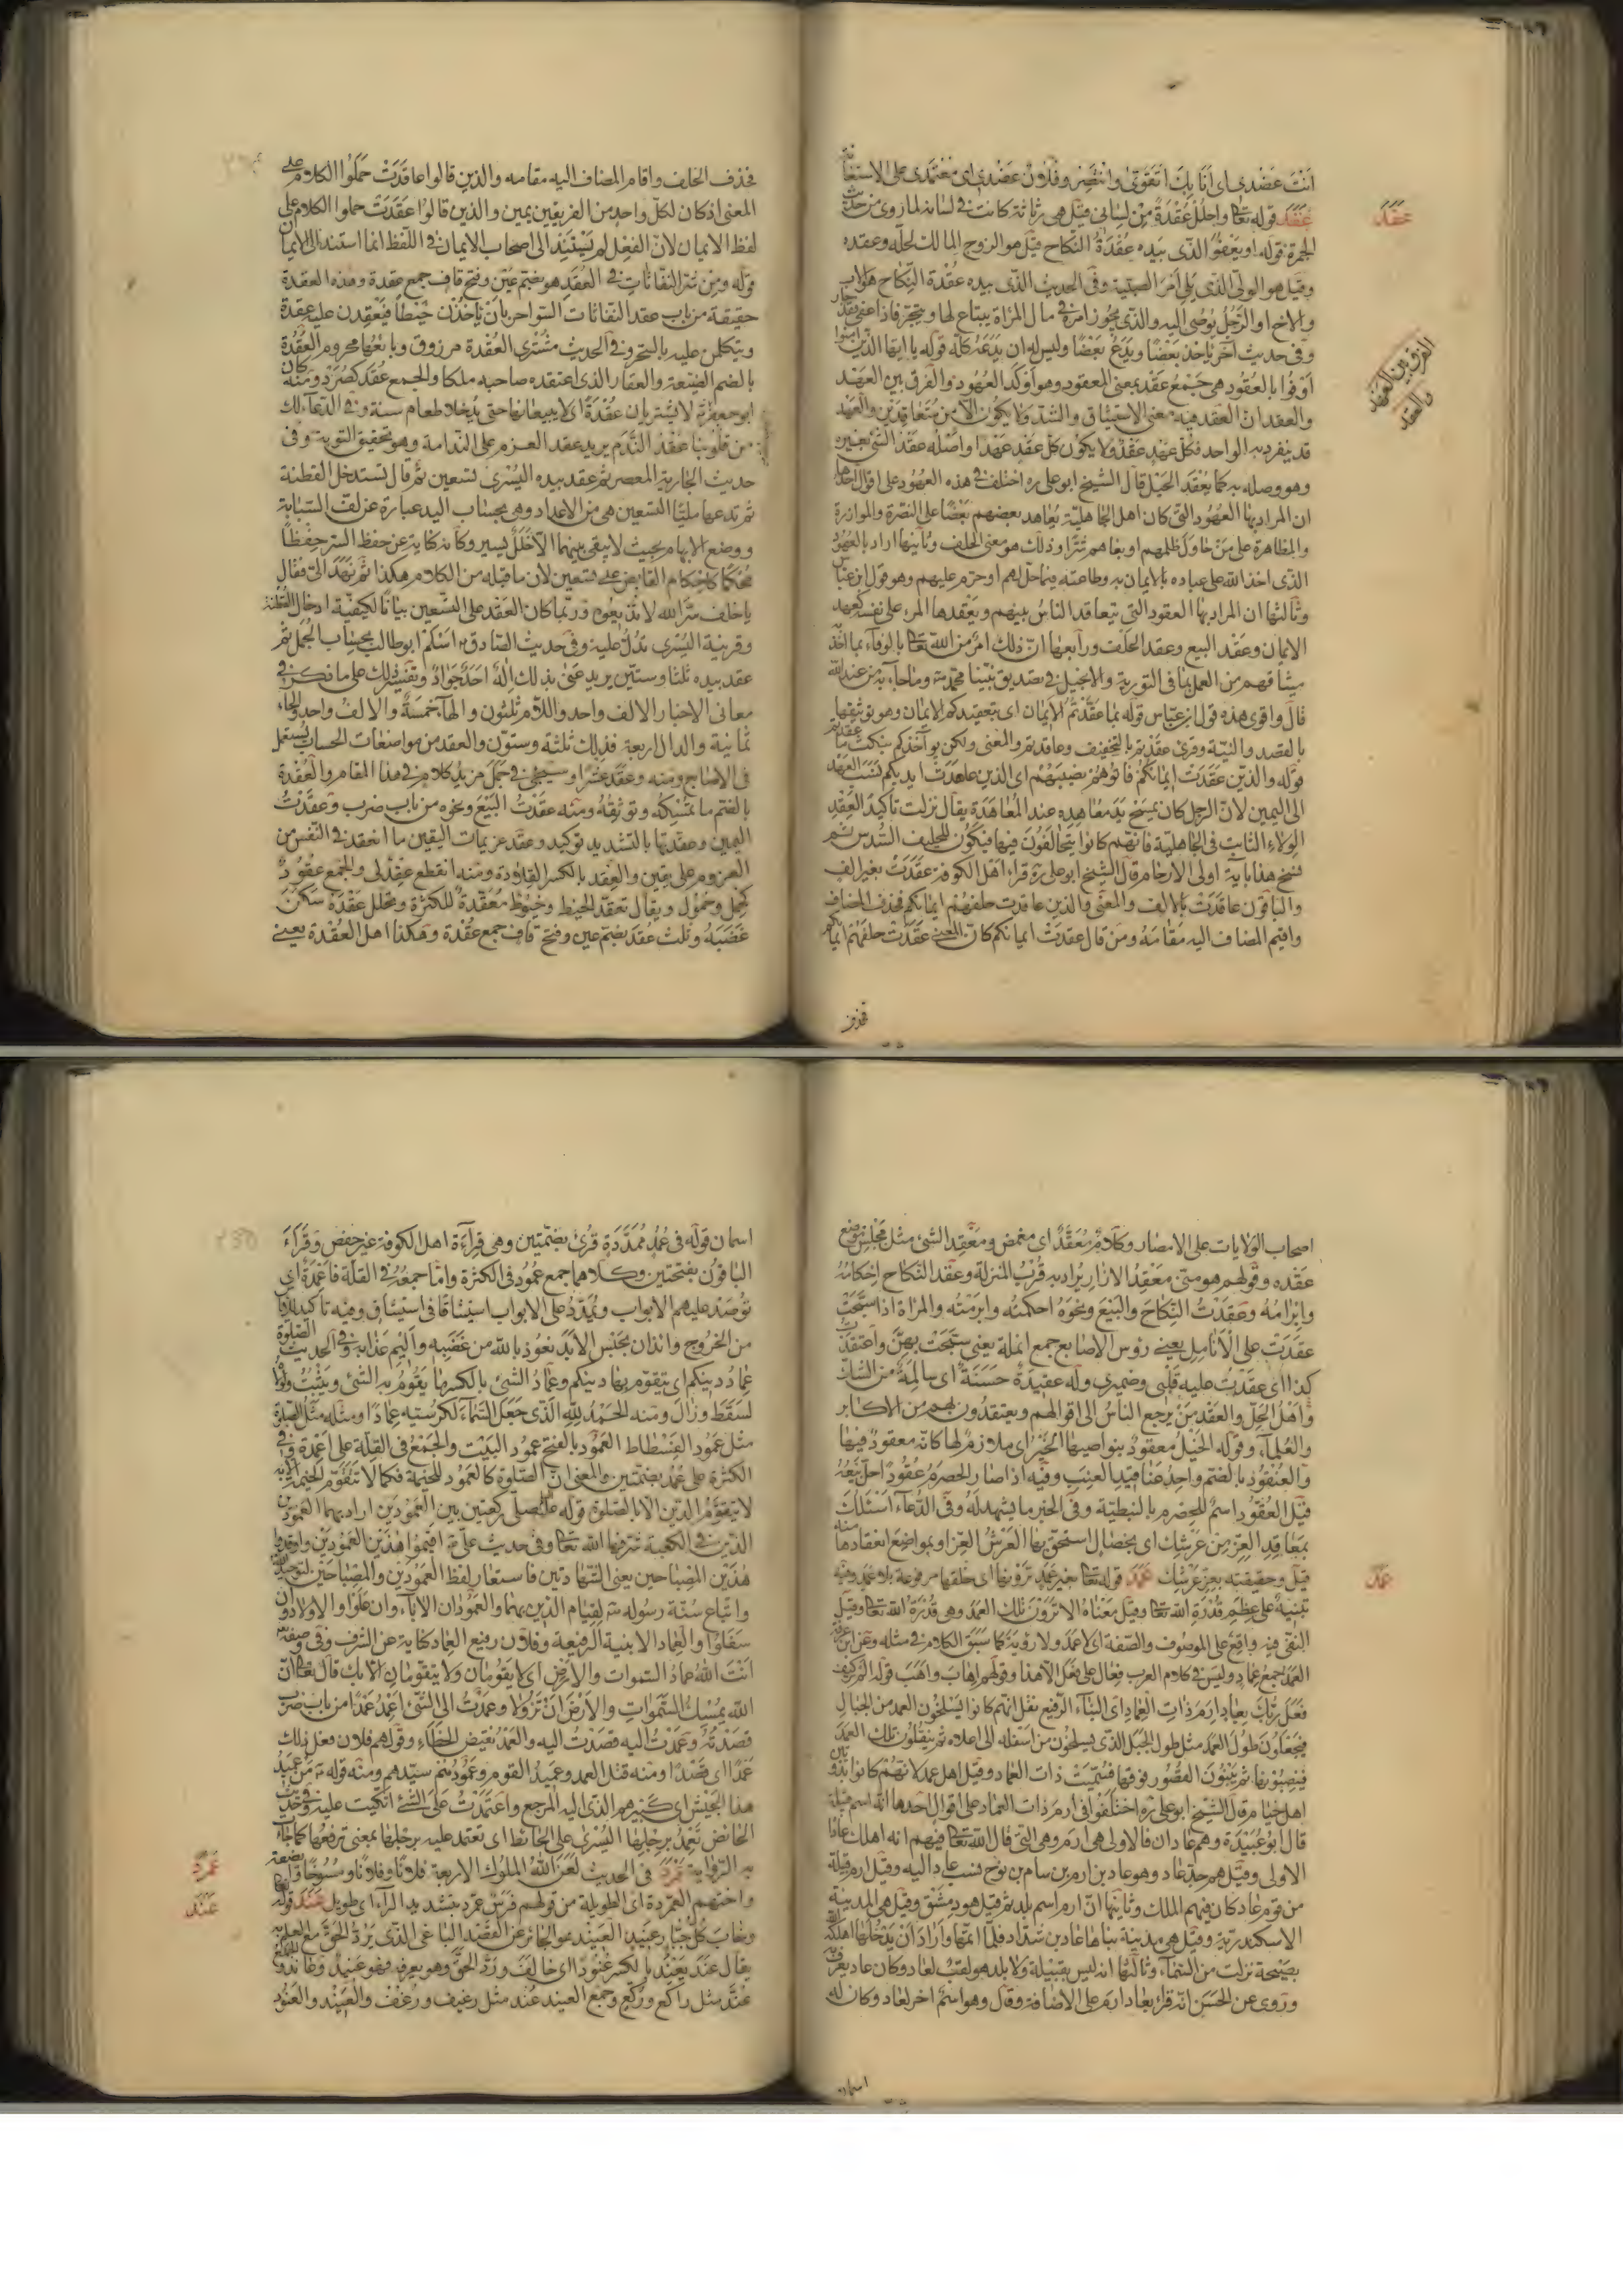 انت عضدى اى انا بك اتقوى وانتصر وفلان عضدى اى معتمدى على الاستعانة
عقد قوله تعالى واحلل عقدة من لسانى قيل هى رثاثة كانت فى لسانه لما روى من حديث
عقد
الجمرة قوله او يعفو الذى بيده عقدة النكاح قيل هو الزوج المالك لحله وعقده
وقيل هو الولى الذى يلى امر الصبية وفى الحديث الذى بيده عقدة النكاح هو الاب
والاخ او الرجل يوصى اليه والذى يجوز امره فى مال المراة يبتاع لها ويتجر فاذا عفى فقد جاز
وفى حديث اخر ياخذ بعضا ويدع بعضا وليس له ان يدعه كله قوله يا ايها الذين امنوا
الفرق بين العهد
والعقد
اوفوا بالعقود هى جمع عقد بمعنى المعقود وهو اوكد العهود والفرق بين العهد
والعقد ان العقد فيه معنى الاستيثاق والشد ولا يكون الا من متعاقدين والعهد
قد ينفرد به الواحد فكل عهد عقد ولا يكون كل عقد عهدا واصله عقد الشئ بغيره
وهو وصله به كما يعقد الحبل قال الشيخ ابو على ره اختلف فى هذه العهود على اقوال احدها
ان المراد بها العهود التى كان اهل الجاهلية يعاهد بعضهم بعضا على النصرة والموازرة
والمظاهرة على من حاول ظلمهم او بغاهم شرا وذلك هو معنى الحلف وثانيها اراد بالعهود
الذى اخذ الله على عباده بالايمان به وطاعته فيما احل لهم او حرم عليهم وهو قول ابن عباس
وثالثها ان المراد بها العقود التى يتعاقد الناس بينهم ويعقدها المرء على نفسه كعهد
الايمان وعقد البيع وعقد الحلف ورابعها ان ذلك امر من الله تعالى بالوفاء بما اخذ
ميثاقهم من العمل بما فى التورية والانجيل فى تصديق نبينا محمد وما جاء به من عند الله
قال واقوى هذه قول ابن عباس قوله بما عقدتم الايمان اى بتعقيدكم الايمان وهو توثيقها
بالقصد والنية وقرئ عقدتم بالتخفيف وعاقدتم والمعنى ولكن يواخذكم بنكث ما عقدتم
قوله والذين عقدت ايمانكم فاتوهم نصيبهم اى الذين عاهدت ايديكم نسبت العهد
الى اليمين لان الرجل كان يمسح يد معاهده عند المعاهدة يقال نزلت تاكيد العقد
الولاء الثابت فى الجاهلية فانهم كانوا يتحالفون فيها فيكون للحليف السدس ثم
نسخ هذا باية اولى الارحام قال الشيخ ابو على ره قرا اهل الكوفة عقدت بغير الف
والباقون عاقدت بالالف والمعنى والذين عاقدت حلفهم ايمانكم فحذف المضاف
واقيم المضاف اليه مقامه ومن قال عقدت ايمانكم كان المعنى عقدت حلفهم ايمانكم
فحذف
فحذف الحلف واقام المضاف اليه مقامه والذين قالوا عاقدت حملوا الكلام على
المعنى اذ كان لكل واحد من الفريقين يمين والذين قالوا عقدت حملوا الكلام على
لفظ الايمان لان الفعل لم يستند الى اصحاب الايمان فى اللفظ انما استند الى الايمان
قوله ومن شر النفاثات فى العقد هو بضم عين وفتح قاف جمع عقدة وهذه العقدة
حقيقة من باب عقد النفاثات السواحر بان ياخذن خيطا فيعقدن عليه عقدة
ويتكلمن عليه بالسحر وفى الحديث مشترى العقدة مرزوق وبايعها محروم العقدة
بالضم الضيعة والعقار الذى اعتقده صاحبه ملكا والجمع عقد كصرد ومنه كان
ابو جعفر لا يشتريان عقدة اى لا يبيعانها حتى يدخلا طعام سنة وفى الدعاء لك
من قلوبنا عقد الندم يريد عقد العزم على الندامة وهو تحقيق التوبة وفى
حديث الجارية المعصر ثم عقد بيده اليسرى تسعين ثم قال تستدخل القطنة
ثم تدعها مليا التسعين هى من الاعداد وهى بحساب اليد عبارة عن لف السبابة
ووضع الابهام بحيث لا يبقى بينهما الا خلل يسير وكانه كناية عن حفظ السر حفظا
محكما كاحكام القابض على تسعين لان ما قبله من الكلام هكذا ثم نهد الى فقال
يا خلف سر الله لا تذيعوه وربما كان العقد على التسعين بيانا لكيفية ادخال القطنة
وقرينة اليسرى تدل عليه وفى حديث الصادق اسلم ابو طالب بحساب الجمل ثم
عقد بيده ثلثا وستين يريد عنى بذلك اله احد جواد وتفسير ذلك على ما ذكر فى
معانى الاخبار الالف واحد واللام ثلثون والهاء خمسة والالف واحد والحاء
ثمانية والدال اربعة فذلك ثلثة وستون والعقد من مواضعات الحساب يستعمل
فى الاصابع ومنه وعقد عشرا وسيجئ فى جمل مزيد كلام فى هذا المقام والعقدة
بالضم ما تمسكه وتوثقه ومنه عقدت البيع ونحوه من باب ضرب وعقدت
اليمين وعقدتها بالتشديد توكيد وعقد عزيمات اليقين ما انعقد فى النفس من
العزوم على يقين والعقد بالكسر القلادة ومنه انقطع عقد لى والجمع عقود
كحمل وحمول ويقال تعقد الخيط وخيوط معقدة للكثرة وتحلل عقدة سكن
غضبه وثلث عقد بضم عين وفتح قاف جمع عقدة وهكذا اهل العقدة يعنى
اصحاب الولايات على الامصار وكلام معقد اى مغمض ومعقد الشئ مثل مجلس موضع
عقده وقولهم هو منى معقد الازار يراد به قرب المنزلة وعقد النكاح احكامه
وابرامه وعقدت النكاح والبيع ونحوه احكمته وابرمته والمراة اذا سبحت
عقدت على الانامل يعنى رؤس الاصابع جمع انملة يعنى سبحت بهن واعتقدت
كذا اى عقدت عليه قلبى وضميرى وله عقيدة حسنة اى سالمة من الشك
واهل الحل والعقد من يرجع الناس الى اقوالهم ويعتقدون بهم من الاكابر
والعلماء وقوله الخيل معقود بنواصيها الخير اى ملازم لها كانه معقود فيها
والعنقود بالضم واحد عناقيد العنب وفيه اذا صار الحصرم عقودا حل بيعه
قيل العقود اسم للحصرم بالنبطية وفى الخبر ما يشهد له وفى الدعاء اسئلك
بمعاقد العز من عرشك اى بخصال استحق بها العرش العز او بمواضع انعقادها منه
قيل وحقيقته بعز عرشك عمد قوله تعالى بغير عمد ترونها اى خلقها مرفوعة بلا عمد وفيه
عمد
تنبيه على عظيم قدرة الله تعالى وقيل معناه لا ترون تلك العمد وهى قدرة الله تعالى وقيل
النفى فيه واقع على الموصوف والصفة اى لا عمد ولا رؤية كما سبق الكلام فى مثله وعن ابن عرفة
العمد جمع عماد وليس فى كلام العرب فعال على فعل الا هذا وقولهم اهاب واهب قوله الم تر كيف
فعل ربك بعاد ارم ذات العماد اى البناء الرفيع نقل انهم كانوا يسلخون العمد من الجبال
فيجعلون طول العمد مثل طول الجبل الذى يسلخون من اسفله الى اعلاه ثم ينقلون تلك العمد
فينصبونها ثم يبنون القصور فوقها فسميت ذات العماد وقيل اهل عمد لانهم كانوا بدويين
اهل خيام قال الشيخ ابو على ره اختلفوا فى ارم ذات العماد على اقوال احدها انه اسم قبيلة
قال ابو عبيدة وهم عادان فالاولى هى ارم وهى التى قال الله تعالى فيهم انه اهلك عادا
الاولى وقيل هم جد عاد وهو عاد بن ارم بن سام بن نوح فنسب عاد اليه وقيل ارم قبيلة
من قوم عاد كان فيهم الملك وثانيها ان ارم اسم بلد ثم قيل هو دمشق وقيل هى المدينة
الاسكندرية وقيل هى مدينة بناها عاد بن شداد فلما اتمها واراد ان يدخلها اهلكه الله
بصيحة نزلت من السماء وثالثها انه ليس بقبيلة ولا بلد هو لقب لعاد وكان عاد يعرف به
وروى عن الحسن انه قرا بعاد ارم على الاضافة وقال هو اسم اخر لعاد وكان له
اسمان
اسمان قوله فى عمد ممددة قرئ بضمتين وهى قراءة اهل الكوفة غير حفص وقراء
الباقون بفتحتين وكلاهما جمع عمود فى الكثرة واما جمعه فى القلة فاعمدة اى
توصد عليهم الابواب وتمدد على الابواب استيثاقا فى استيثاق وفيه تاكيد لليأس
من الخروج وايذان بحبس الابد نعوذ بالله من غضبه واليم عذابه وفى الحديث الصلوة
عماد دينكم اى يتقوم بها دينكم وعماد الشئ بالكسر ما يقوم به الشئ ويثبت ولولاه
لسقط وزال ومنه الحمد لله الذى جعل السماء لكرسيه عمادا ومنه مثل الصلوة
مثل عمود الفسطاط العمود بالفتح عمود البيت والجمع فى القلة على اعمدة وفى
الكثرة على عمد بضمتين والمعنى ان الصلوة كالعمود للخيمة فكما لا تتقوم الخيمة الا به
لا يتقوم الدين الا بالصلوة قوله صلى ركعتين بين العمودين اراد بهما العمودين
الذين فى الكعبة شرفها الله تعالى وفى حديث على اقيموا هذين العمودين واوقدوا
هذين المصباحين يعنى الشهادتين فاستعار لفظ العمودين والمصباحين لتوحيد الله
واتباع سنة رسوله لقيام الدين بهما والعمودان الاباء وان علوا والاولاد وان
سفلوا والعماد الابنية الرفيعة وفلان رفيع العماد كناية عن الشرف وفى وصفه
انت الله عماد السموات والارض اى لا يقومان ولا يتقومان الا بك قال تعالى ان
الله يمسك السموات والارض ان تزولا وعمدت الى الشئ اعمد عمدا من باب ضرب
قصدته وعمدت اليه قصدت اليه والعمد نقيض الخطاء وقولهم فلان فعل ذلك
عمدا اى قصدا ومنه قتل العمد وعميد القوم وعمودهم سيدهم ومنه قوله من عميد
هذا الجيش اى كبيرهم الذى اليه المرجع واعتمدت على الشئ اتكيت عليه وفى حديث
الحائض تعمد برجلها اليسرى على الحائط اى تعتمد عليه برجلها بمعنى ترفعها كما جاءت
به الرواية عمرد فى الحديث لعن الله الملوك الاربعة فلانا وفلانا ومسوخا وابضعة
عمرد
واختهم العمردة اى الطويلة من قولهم فرس عمرد بتشديد الراء اى طويل عند قوله تعالى
عند
وخاب كل جبار عنيد العنيد هو الجائر عن القصد الباغى الذى يرد الحق مع العلم به
يقال عند يعند بالكسر عنودا اى خالف ورد الحق وهو يعرفه فهو عنيد وعاند والجمع
عند مثل راكع وركع وجمع العنيد عند مثل رغيف ورغف والعنيد والعنود